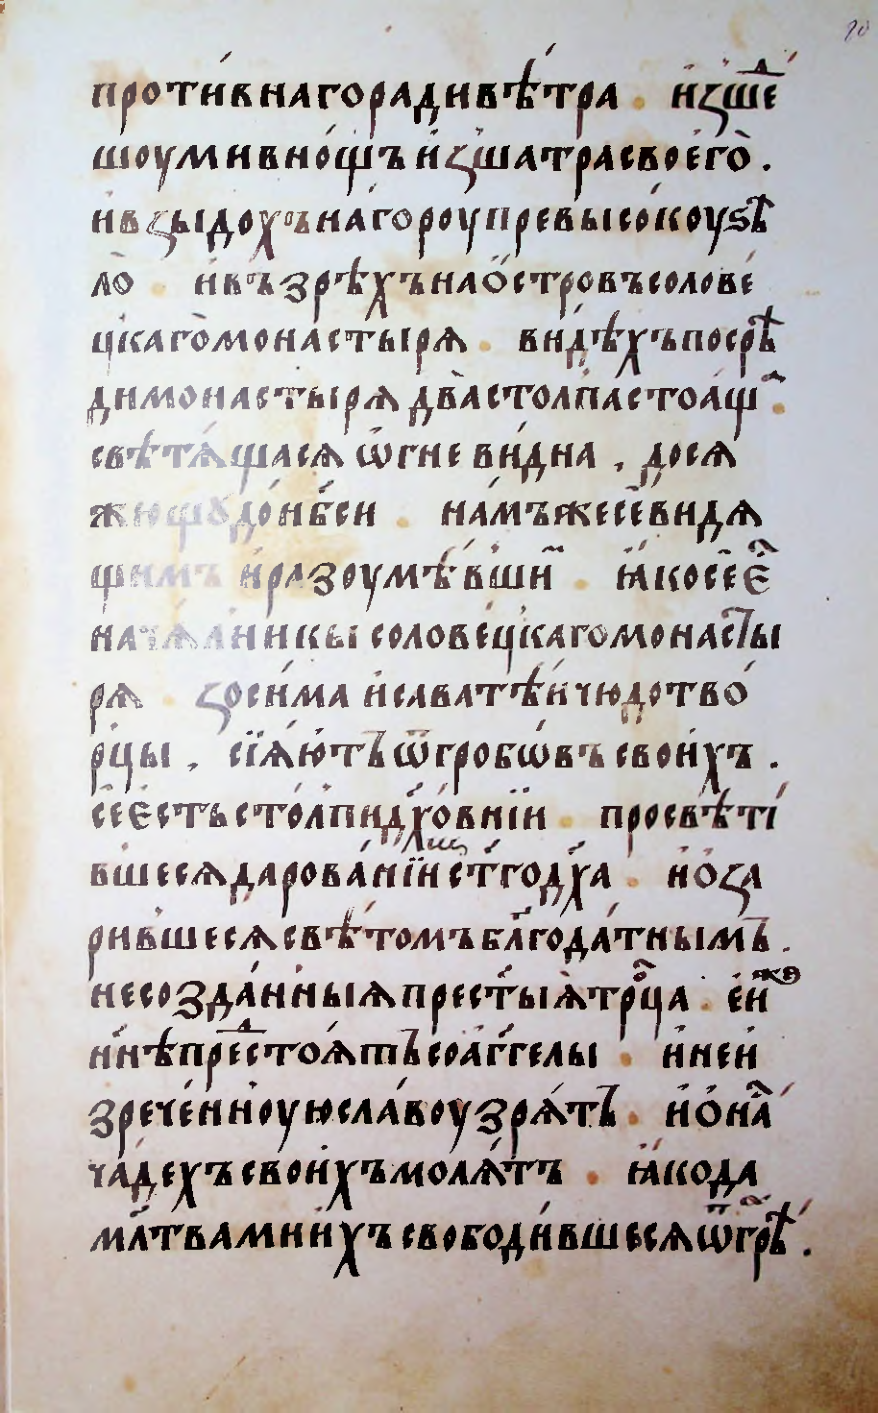 проти́внагорадивѣ́тра . и҆ꙁше́д
шоумивно́щъи҆ꙁшатрасвоего̀ .
и҆вꙁыдо́хъна́гороупревысо́коуѕѣ
ло̀ . и҆възрѣ́хънао҆́стровъсолове́
цкаго̀монастырѧ . ви́дѣхъпосрѣ́
димонастырѧ два̀столпа̀стоа́щ
свѣтѧ́щасѧ ѡ҆́гневи́дна , досѧ
жꙋщꙋдо́нб҃си . на́мъжесѐвидѧ
щимъ и҆разоумѣ́вши м . ꙗ҆́косеє҆́с
начѧ́лникы солове́цкагомонасты
рѧ ꙁоси́ма и҆савате́ичюдотво́
рцы , сїѧ́ютъѿгробѡ́въсвои́хъ .
сеє҆́стьсто́лпидх҃о́внїи . просвѣти́
вшесѧдарова́нїист҃годх҃а . и҆о҆ꙁа
ри́вшесѧсвѣ́томъбл҃года́тнымъ .
несозда́нныѧпрест҃ы́ѧтро́ца . є҆́и́же
нн҃ѣпредстоѧ́тъсоа҆́гг҃елы . и҆неи
зрече́нноуюсла́воузрѧ́тъ . и҆о҆на́с
ча́дехъсвои́хъмолѧ́тъ . ꙗ҆́кода
мл҃твамии҆́хъсвободи́вшесѧѿгрѣ́х .